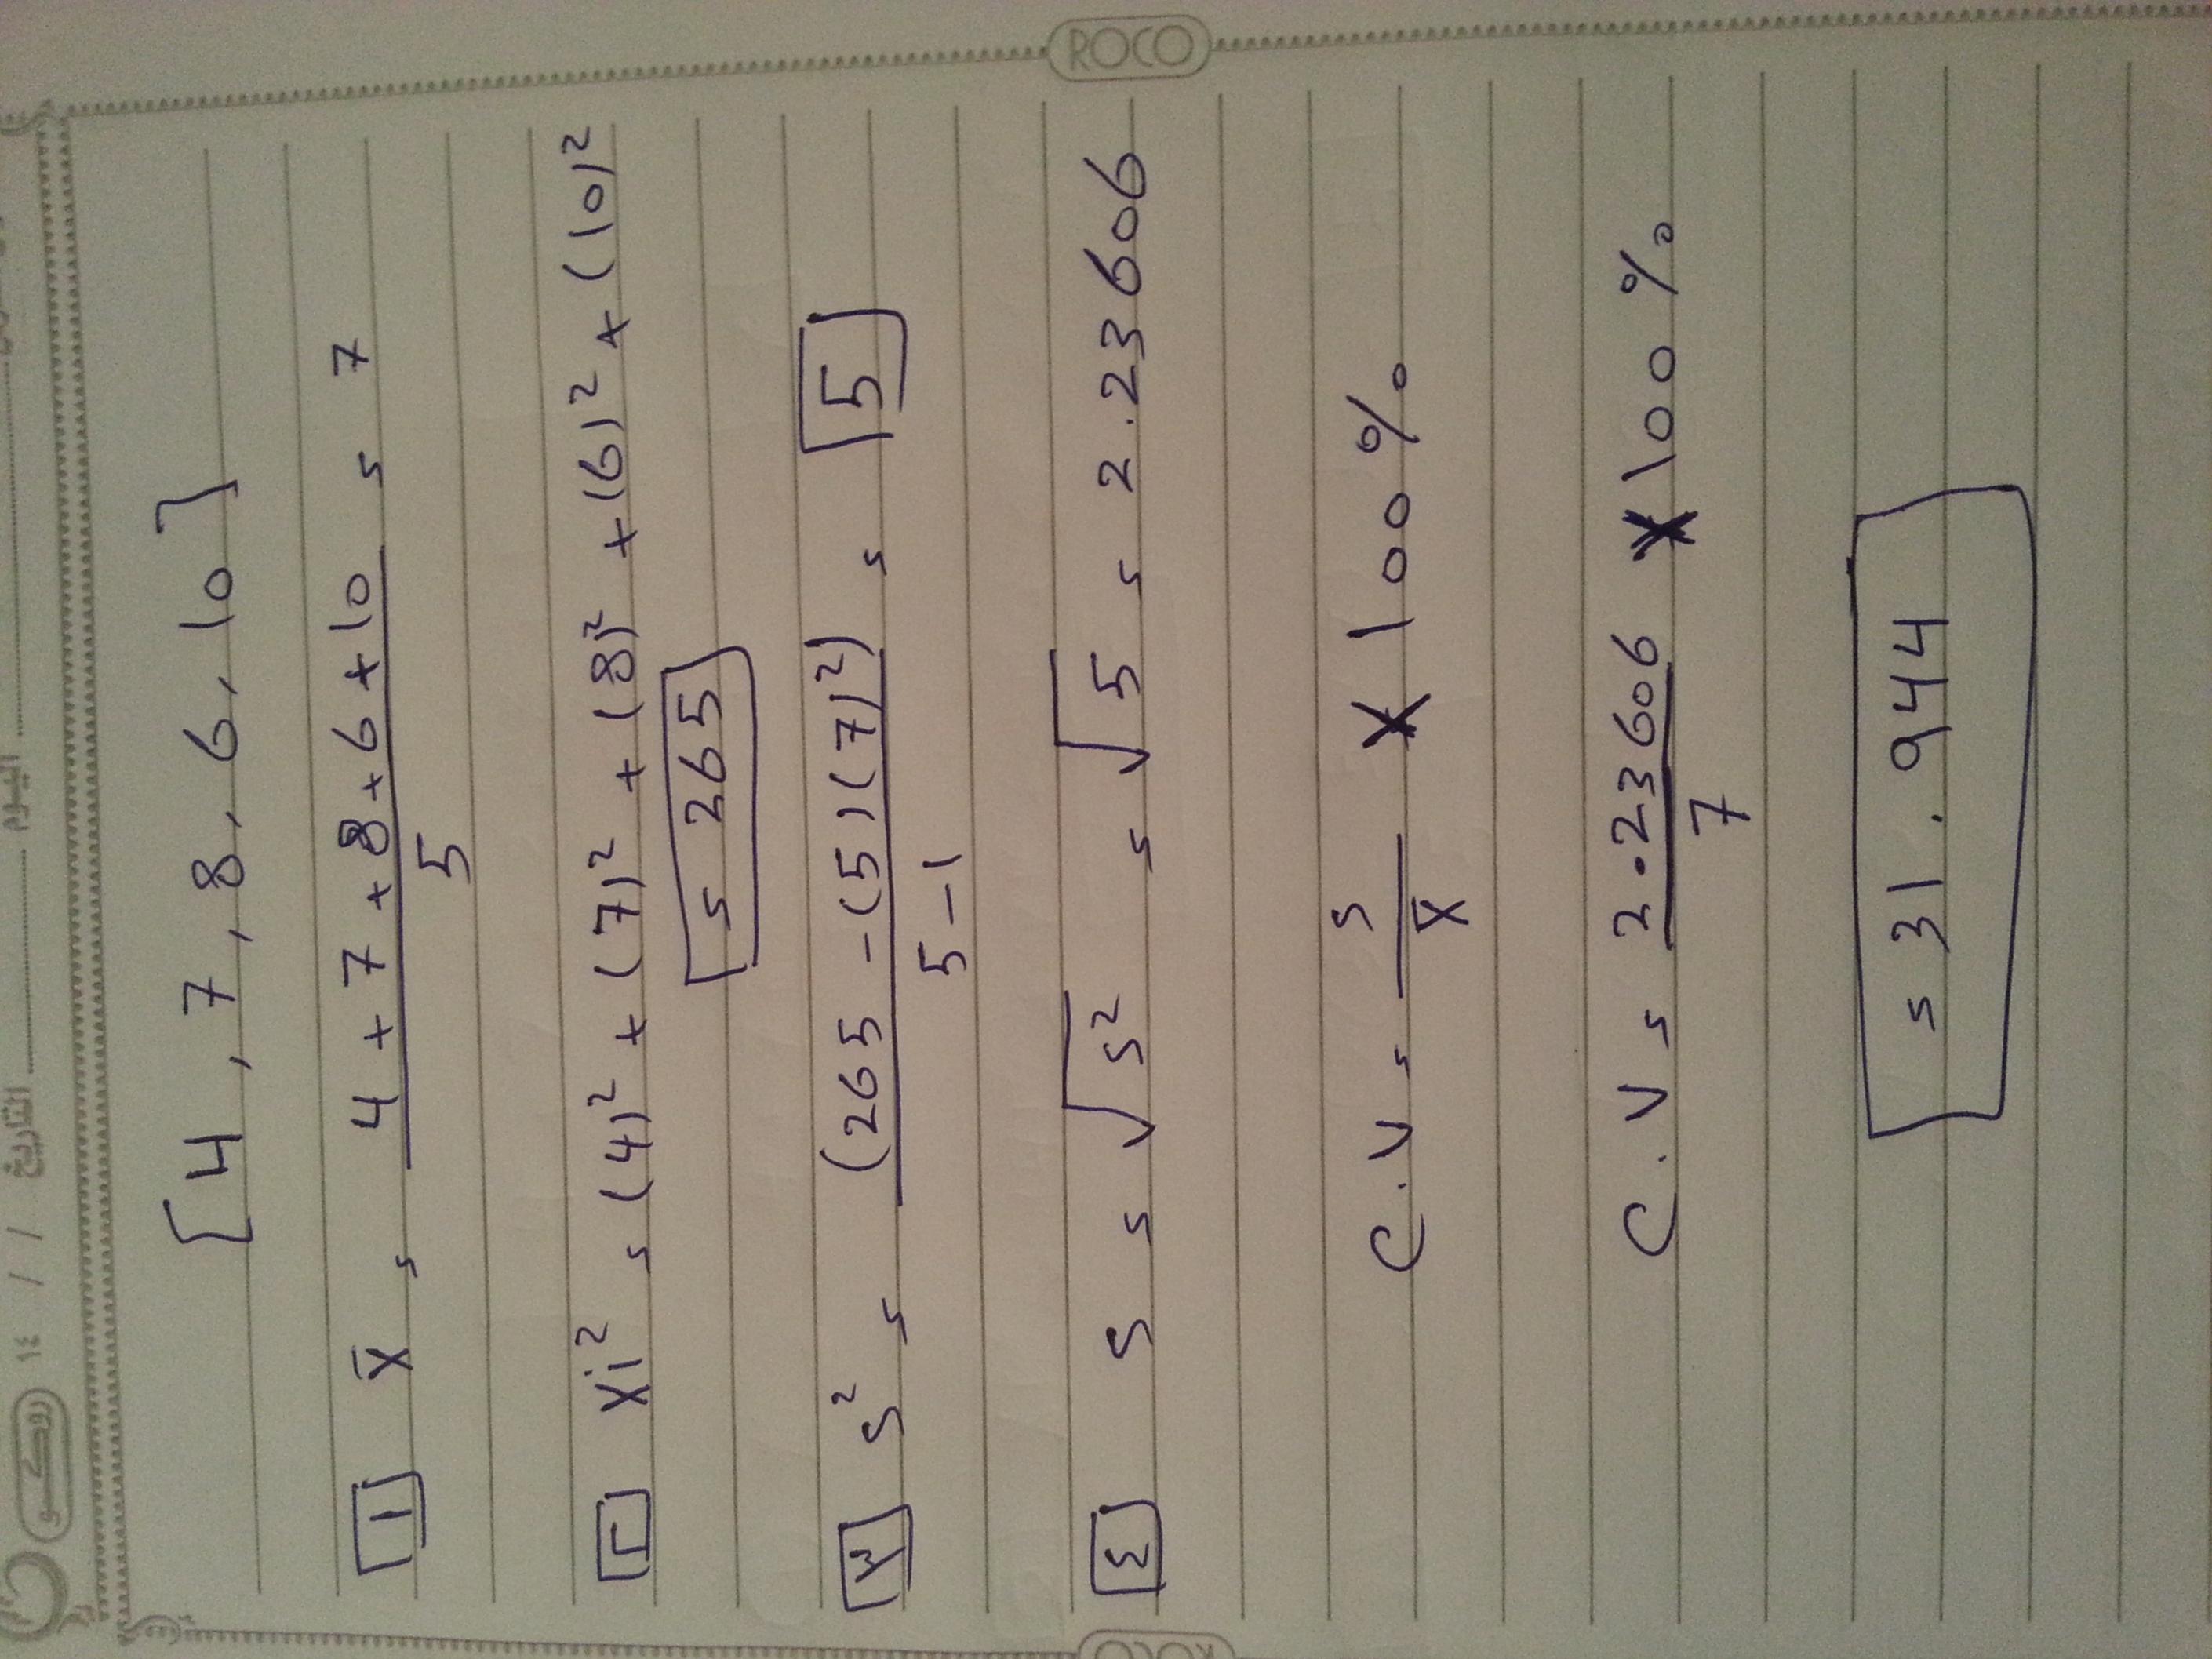 روكو ١٤ / / التاريخ اليوم
ROCO
[4, 7, 8, 6, 10]
١ x̄ = 4 + 7 + 8 + 6 + 10 / 5 = 7
٢ xi² = (4)² + (7)² + (8)² + (6)² + (10)²
= 265
٣ s² = (265 - (5)(7)²) / 5-1 = 5
٤ S = √s² = √5 = 2.23606
C.V = s / x̄ X 100%
C.V = 2.23606 / 7 X 100%
= 31.944
ROCO